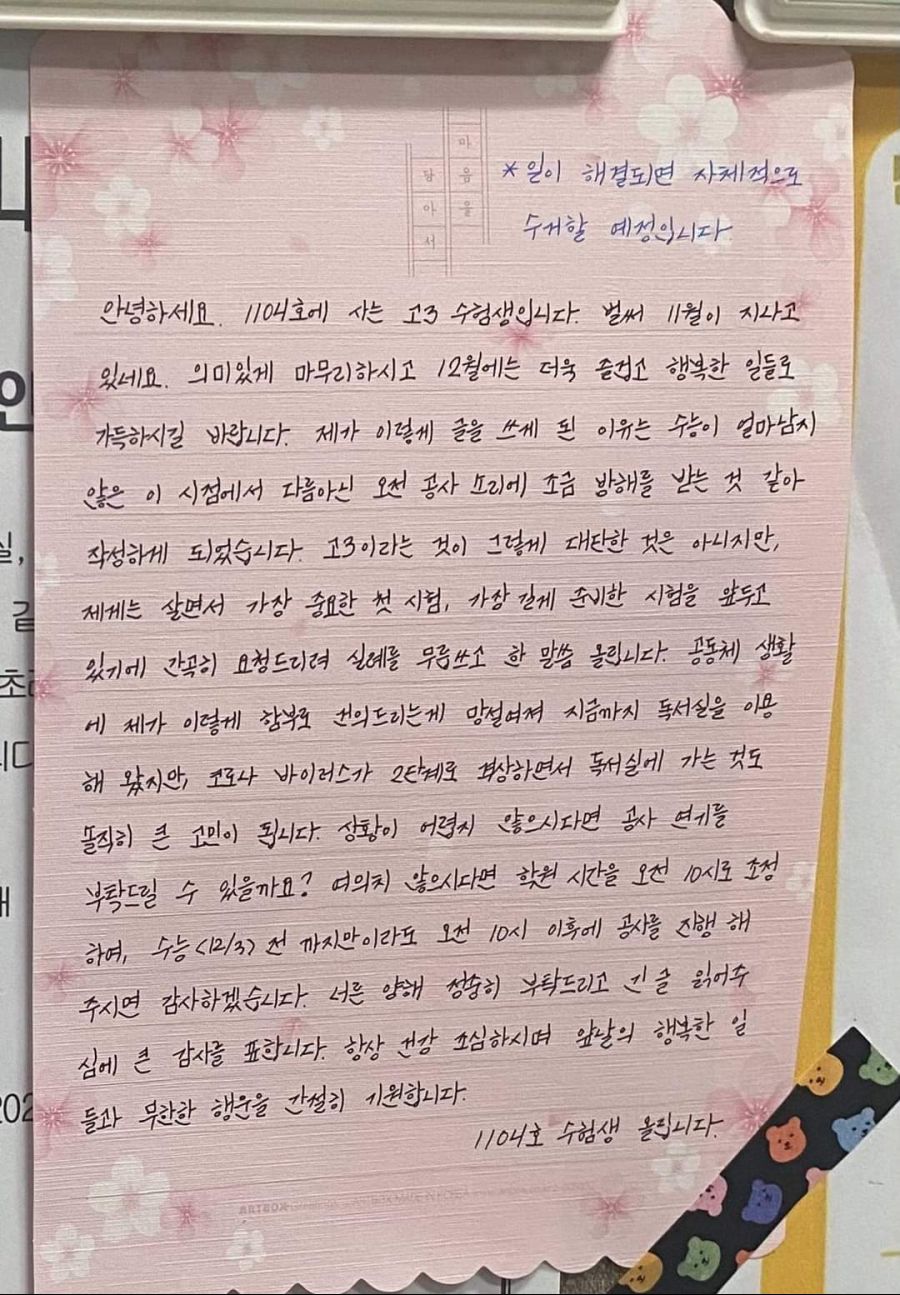 마음을
담아서
* 일이 해결되면 자체적으로
수거할 예정입니다.
안녕하세요. 1104호에 사는 고3 수험생입니다. 벌써 11월이 지나고
있네요. 의미있게 마무리하시고 12월에는 더욱 즐겁고 행복한 일들로
가득하시길 바랍니다. 제가 이렇게 글을 쓰게 된 이유는 수능이 얼마남지
않은 이 시점에서 다름아닌 오전 공사 소리에 조금 방해를 받는 것 같아
작성하게 되었습니다. 고3이라는 것이 그렇게 대단한 것은 아니지만,
제게는 살면서 가장 중요한 첫 시험, 가장 길게 준비한 시험을 앞두고
있기에 간곡히 요청드리려 실례를 무릅쓰고 한 말씀 올립니다. 공동체 생활
에 제가 이렇게 함부로 건의드리는게 망설여져 지금까지 독서실을 이용
해 왔지만, 코로나 바이러스가 2단계로 격상하면서 독서실에 가는 것도
솔직히 큰 고민이 됩니다. 상황이 어렵지 않으시다면 공사 연기를
부탁드릴 수 있을까요? 여의치 않으시다면 학원 시간을 오전 10시로 조정
하여, 수능<12/3> 전 까지만이라도 오전 10시 이후에 공사를 진행 해
주시면 감사하겠습니다. 너른 양해 정중히 부탁드리고 긴 글 읽어주
심에 큰 감사를 표합니다. 항상 건강 조심하시며 앞날의 행복한 일
들과 무한한 행운을 간절히 기원합니다.
1104호 수험생 올립니다.